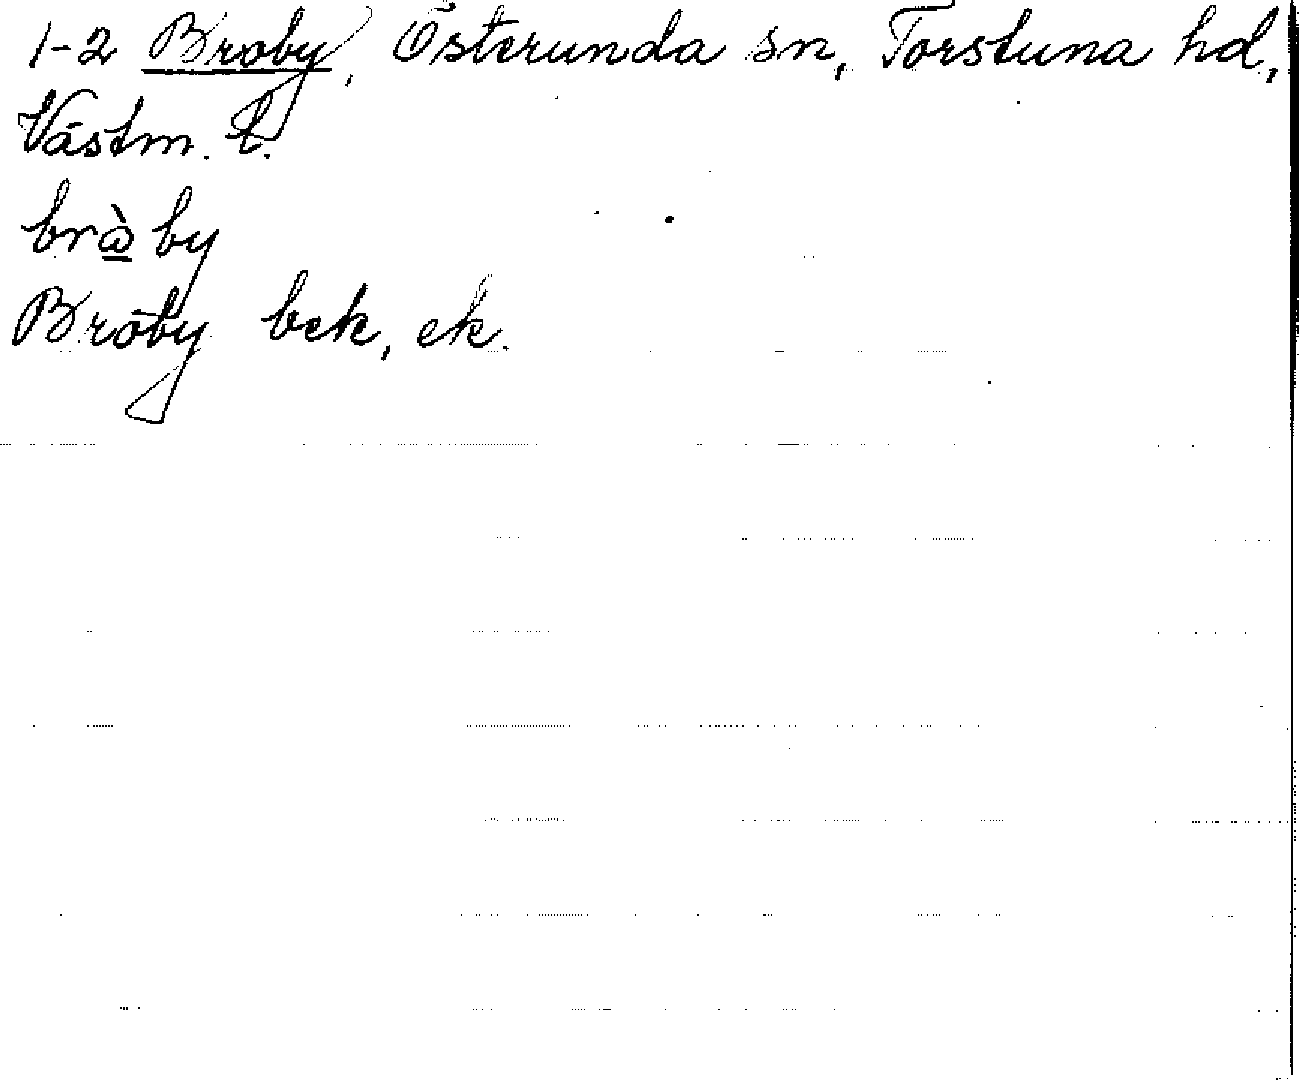 1-2 Broby, Österunda sn, Torstuna hd,
Västm. l.
bròby
Broby bek, ek.